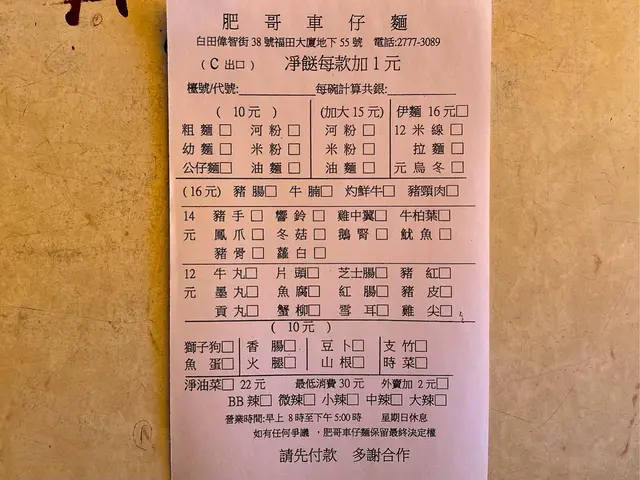 肥哥車仔麵
白田偉智街38號福田大廈地下55號 電話:2777-3089
(C出口) 凈餸每款加1元
檯號/代號:________ 每碗計算共銀:________
(10元) (加大15元) 伊麵16元□
粗麵□ 河粉□ 河粉□ 12米線□
幼麵□ 米粉□ 米粉□ 拉麵□
公仔麵□ 油麵□ 油麵□ 元烏冬□
(16元) 豬腸□ 牛腩□ 灼鮮牛□ 豬頸肉□
14 豬手□ 響鈴□ 雞中翼□ 牛柏葉□
元 鳳爪□ 冬菇□ 鵝腎□ 魷魚□
豬骨□ 蘿白□
12 牛丸□ 片頭□ 芝士腸□ 豬紅□
元 墨丸□ 魚腐□ 紅腸□ 豬皮□
貢丸□ 蟹柳□ 雪耳□ 雞尖□
(10元)
獅子狗□ 香腸□ 豆卜□ 支竹□
魚蛋□ 火腿□ 山根□ 時菜□
淨油菜□ 22元 最低消費30元 外賣加2元□
BB辣□ 微辣□ 小辣□ 中辣□ 大辣□
營業時間:早上8時至下午5:00時 星期日休息
如有任何爭議,肥哥車仔麵保留最終決定權
請先付款 多謝合作